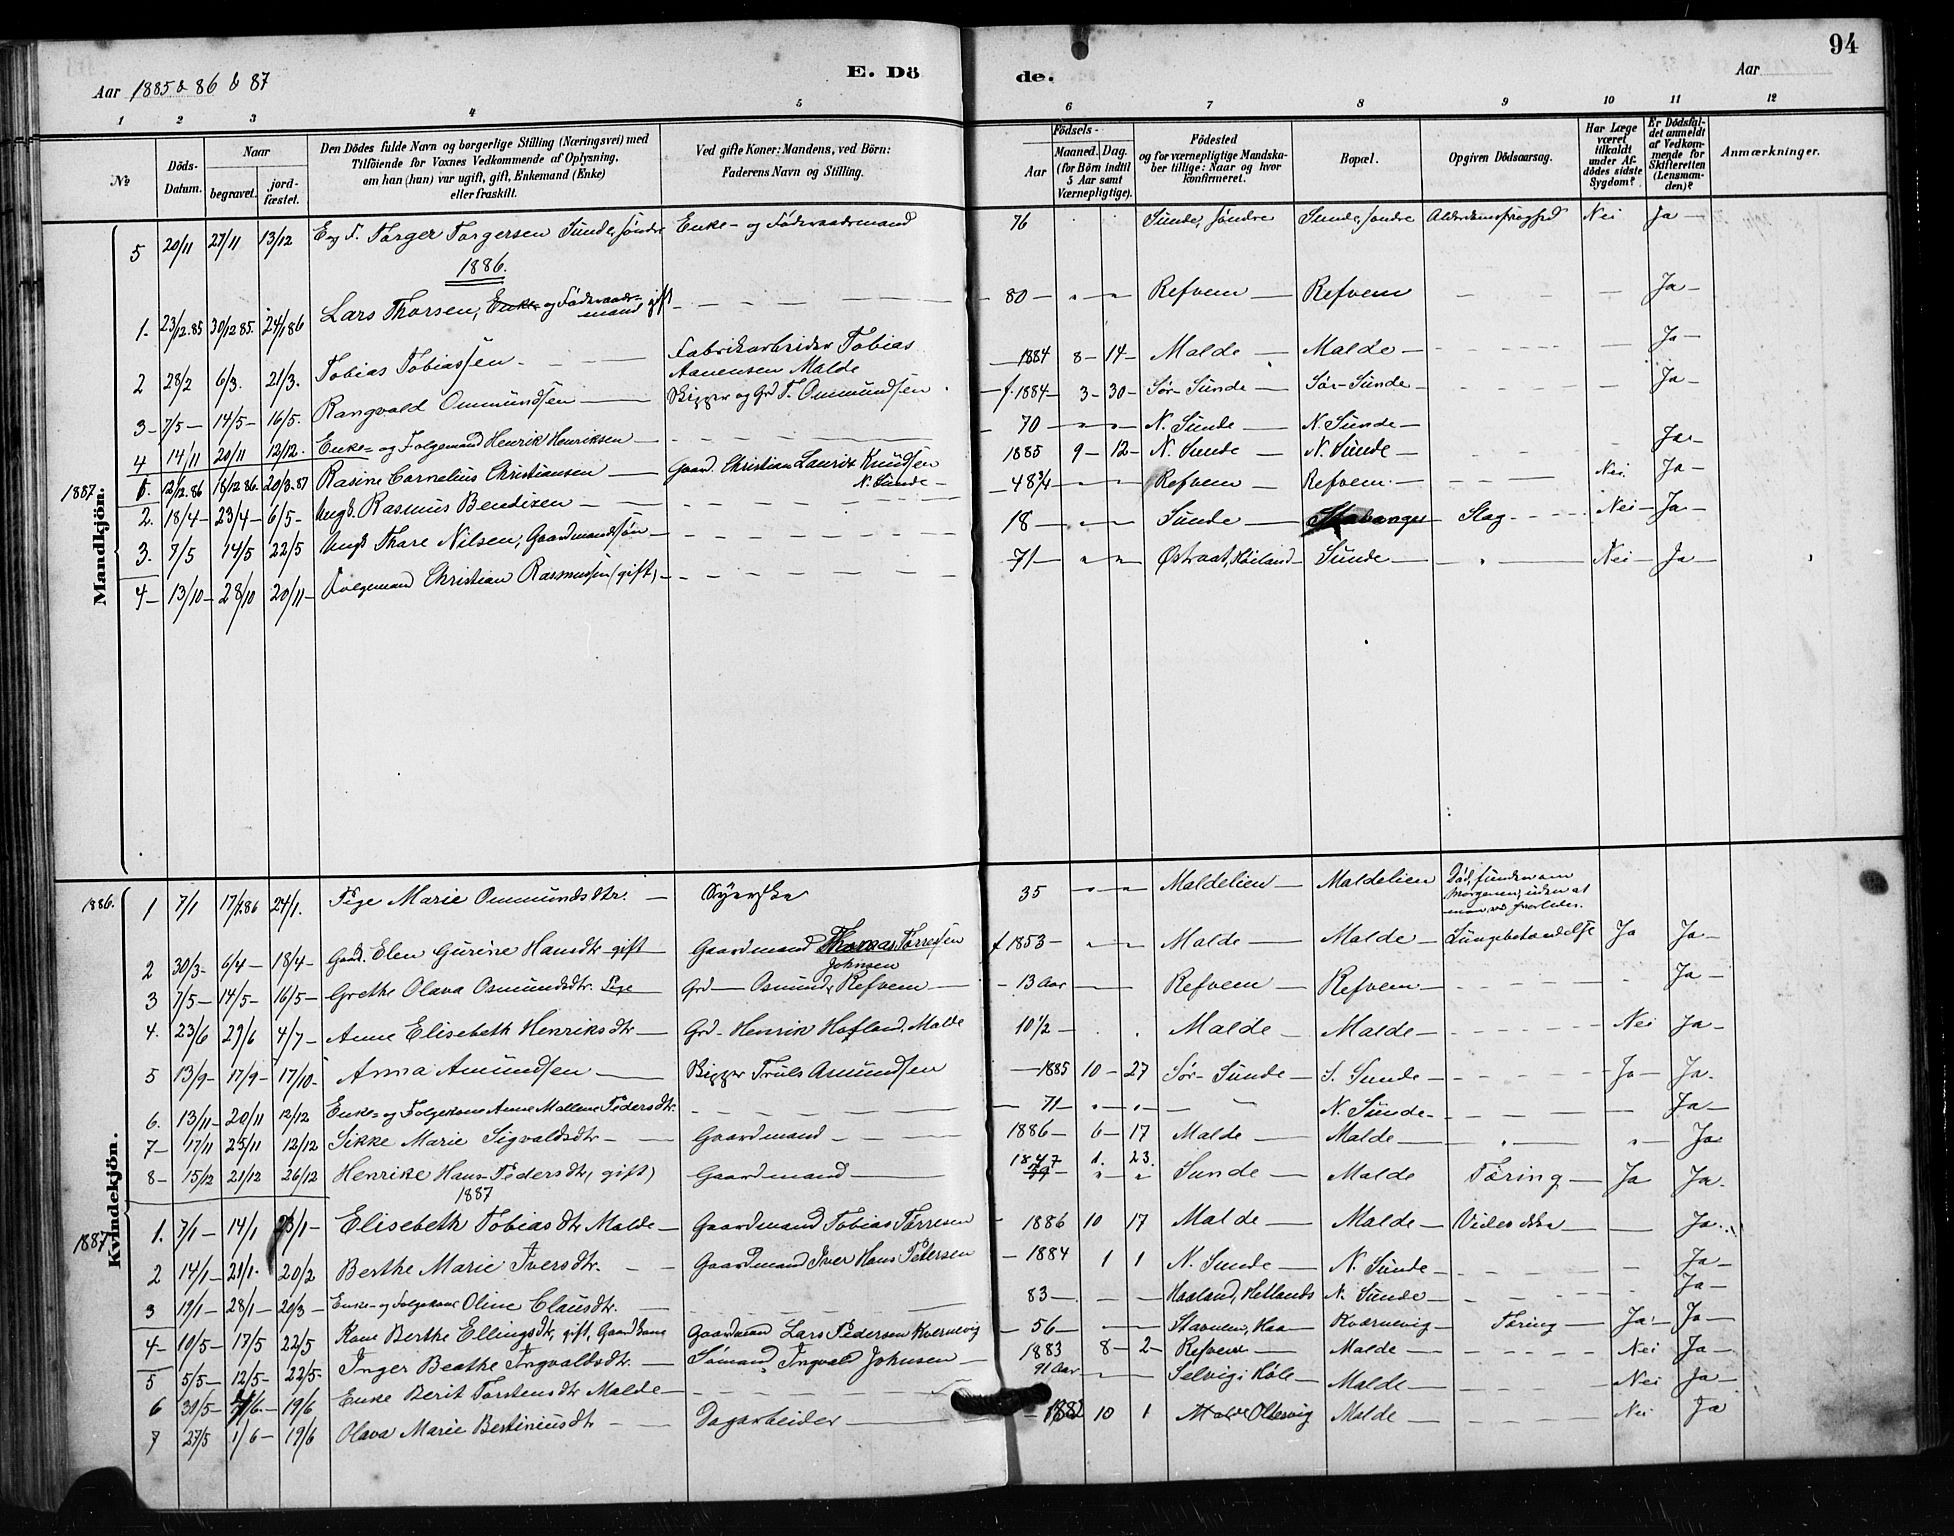 94
Aar 1885 & 86 & 87
E. Dö de.
Aar
1 2 3 4 5 6 7 8 9 10 11 12
No
Döds-Datum.
Naar
begravet.
jord-fæstet.
Den Dödes fulde Navn og borgerlige Stilling (Næringsvei) med
Tilföiende for Voxnes Vedkommende af Oplysning,
om han (hun) var ugift, gift, Enkemand (Enke)
eller fraskilt.
Ved gifte Koner: Mandens, ved Börn:
Faderens Navn og Stilling.
Födsels-
Aar
Maaned. Dag.
(for Börn indtil
5 Aar samt
Værnepligtige).
Födested
og for værnepligtige Mandska-
ber tillige: Naar og hvor
konfirmeret.
Bopæl.
Opgiven Dödsaarsag.
Har Læge
været
tilkaldt
under Af-
dödes sidste
Sygdom?
Er Dödsfal-
det anmeldt
af Vedkom-
mende for
Skifteretten
(Lensman-
den)?
Anmærkninger.
Mandkjön.
5 20/11 27/11 13/12 Torger Torgersen Sunde, söndre Enke- og Föderaadsmand 76 Sunde, söndre Sunde, söndre Alderdomssvaghed Nei Ja
1886.
1. 23/12.85 30/12 85. 24/1 86 Lars Thorsen, Enke- og Föderaads-mand gift 80 Refvem Refvem Ja
2 28/2 6/3. 21/3. Tobias Tobiassen Fabrikarbeider Tobias Aanensen Malde 1884 8 14 Malde Malde Ja
3 7/5 14/5 16/5. Rangvald Ommundsen Skipper og Grd T. Ommundsen f. 1884 3 30 Sör-Sunde Sör-Sunde Ja
4 14/11 20/11 12/12. Enke- og Folgemand Henrik Henriksen 70 N. Sunde N. Sunde
1887. 1. 12/12.86 18/12 86. 20/3.87 Rasine Cornelius Christiansen Gaard. Christian Lauritz Knudsen N. Sunde 1885 9 12 N. Sunde N. Sunde Ja
2. 18/4 23/4 6/5 Ungk. Rasmus Bendixen 48 3/4 Refvem Refvem Nei Ja
3. 7/5 14/5 22/5 Ungk Thore Nilsen, Gaardmandssön 18 Sunde Slag Nei Ja
4 13/10 28/10 20/11 Folgemand Christian Rasmussen (gift) 71 Østraat, Höiland Sunde Nei Ja
Kvindekjön.
1886. 1 7/1 17/1.86 24/1. Pige Marie Ommundsdtr. Syerske 35 Maldelien Maldelien Död, funden om Morgenen, uden at
2 30/3 6/4 18/4 Gaard. Elen Gurine Hansdtr gift Gaardmand Thomas Torressen Johnsen f 1853 Malde Malde Lungebetændelse Ja Ja
3 7/5 14/5 16/5 Grethe Olava Osmundsdtr. Pige Grd Osmund Refvem 13 Aar Refvem Refvem Ja
4. 23/6 29/6 4/7 Anne Elisebeth Henriksdtr Grd Henrik Hafland, Malde 10 1/2 Malde Malde Nei Ja
5 13/9 17/9 17/10 Anna Amundsen Skipper Truls Amundsen 1885 10 27 Sör-Sunde S. Sunde Ja Ja.
6. 13/11 20/11 12/12 Enke- og Folgekone Anne Mallene Pedersdtr. 71 N. Sunde Ja
7 17/11 25/11 12/12 Sikke Marie Sigvaldsdtr Gaardmand 1886 6 17 Malde Malde Ja
8 15/12 21/12 26/12 Henrike Hans-Pedersdtr, gift) Gaardmand 1847 1. 23. Sunde Malde Tæring Ja Ja.
1887
1887 1. 7/1 14/1 23/1 Elisebeth Tobiasdtr Malde Gaardmand Tobias Torresen 1886 10 17 Malde Malde Ja
2 14/1 21/1. 20/2 Berthe Marie Iversdtr. Gaardmand Iver Hans Pedersen 1884 1 1 N. Sunde N. Sunde Ja
3 19/1 28/1 20/3 Enke- og Folgekone Oline Clausdtr. 83 Haaland, Hetlands N. Sunde Ja
4 10/5 17/5 22/5 Kone Berthe Ellingsdtr, gift, Gaardkone Gaardman Lars Pedersen Kvernevig 56 Stavnem, Haa Kværnevig Tæring Ja Ja
5 5/5 12/5 22/5 Inger Beathe Ingvaldsdtr. Sömand Ingvald Johnsen 1883 8 2 Refvem Malde Nei Ja
6 31/5 /6 19/6 Enke Berit Torstensdtr Malde 91 Aar Selvig i Höle Malde Nei Ja
7 27/5 1/6 19/6 Olava Marie Bertiniusdtr Dagarbeider 1882 10 1 Oltervig Malde Nei Ja